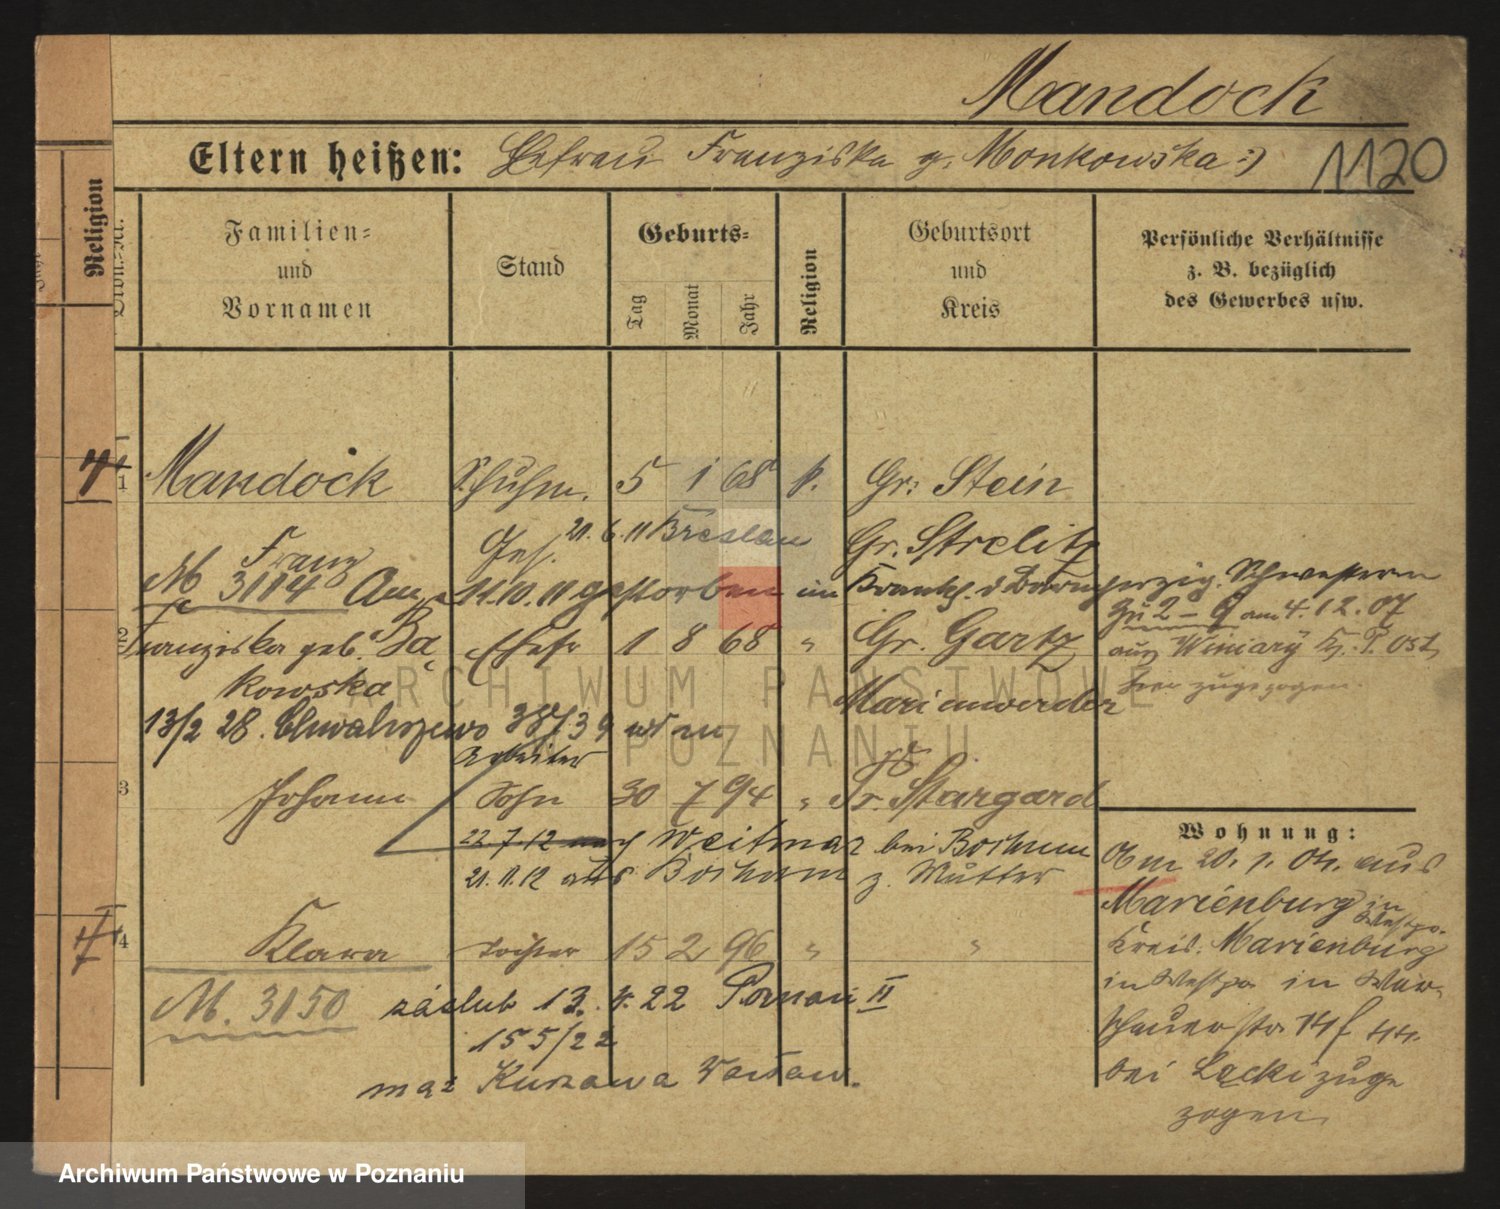 Mandock
Eltern heißen: Ehefrau Franziska g. Monkowska :)
1120
Religion
Familien-
und
Vornamen
Stand
Geburts-
Tag
Monat
Jahr
Religion
Geburtsort
und
Kreis
Persönliche Verhältnisse
z. B. bezüglich
des Gewerbes usw.
1 Mandock Schuhm. 5 1 68 k. Gr: Stein
Franz Ges. 21. 6. 11 Breslau Gr. Strelitz
M 3114 Am 11.10. 11 gestorben im Krankh. d Barmherzig. Schwestern
Zu 2 – 4 am 4. 12. 07
2 Franziska geb. Bą Ehefr 1 8 68 " Gr. Gartz
aus Winiary Kr. P. Ost
kowska Marienwerder
hier zugezogen.
13/2 28. Chwaliszewo 38/39
Arbeiter
3 Johann Sohn 30 7 94 " Pr. Stargard
22.7.12 nach Weitmar bei Bochum
21. 11. 12 aus Bochum z. Mutter
Wohnung:
Am 20. 1. 04. aus
Marienburg in
Westpr.
4 Klara Tochter 15 2 96 " "
Kreis. Marienburg
in Westpr. in War-
M. 3150 záslub 13. 4. 22 Poznań II
schauerstr. 14
155/22
bei Łącki zuge
mąż Kurzawa Wacław.
zogen.
ARCHIWUM PAŃSTWOWE
W POZNANIU
Archiwum Państwowe w Poznaniu